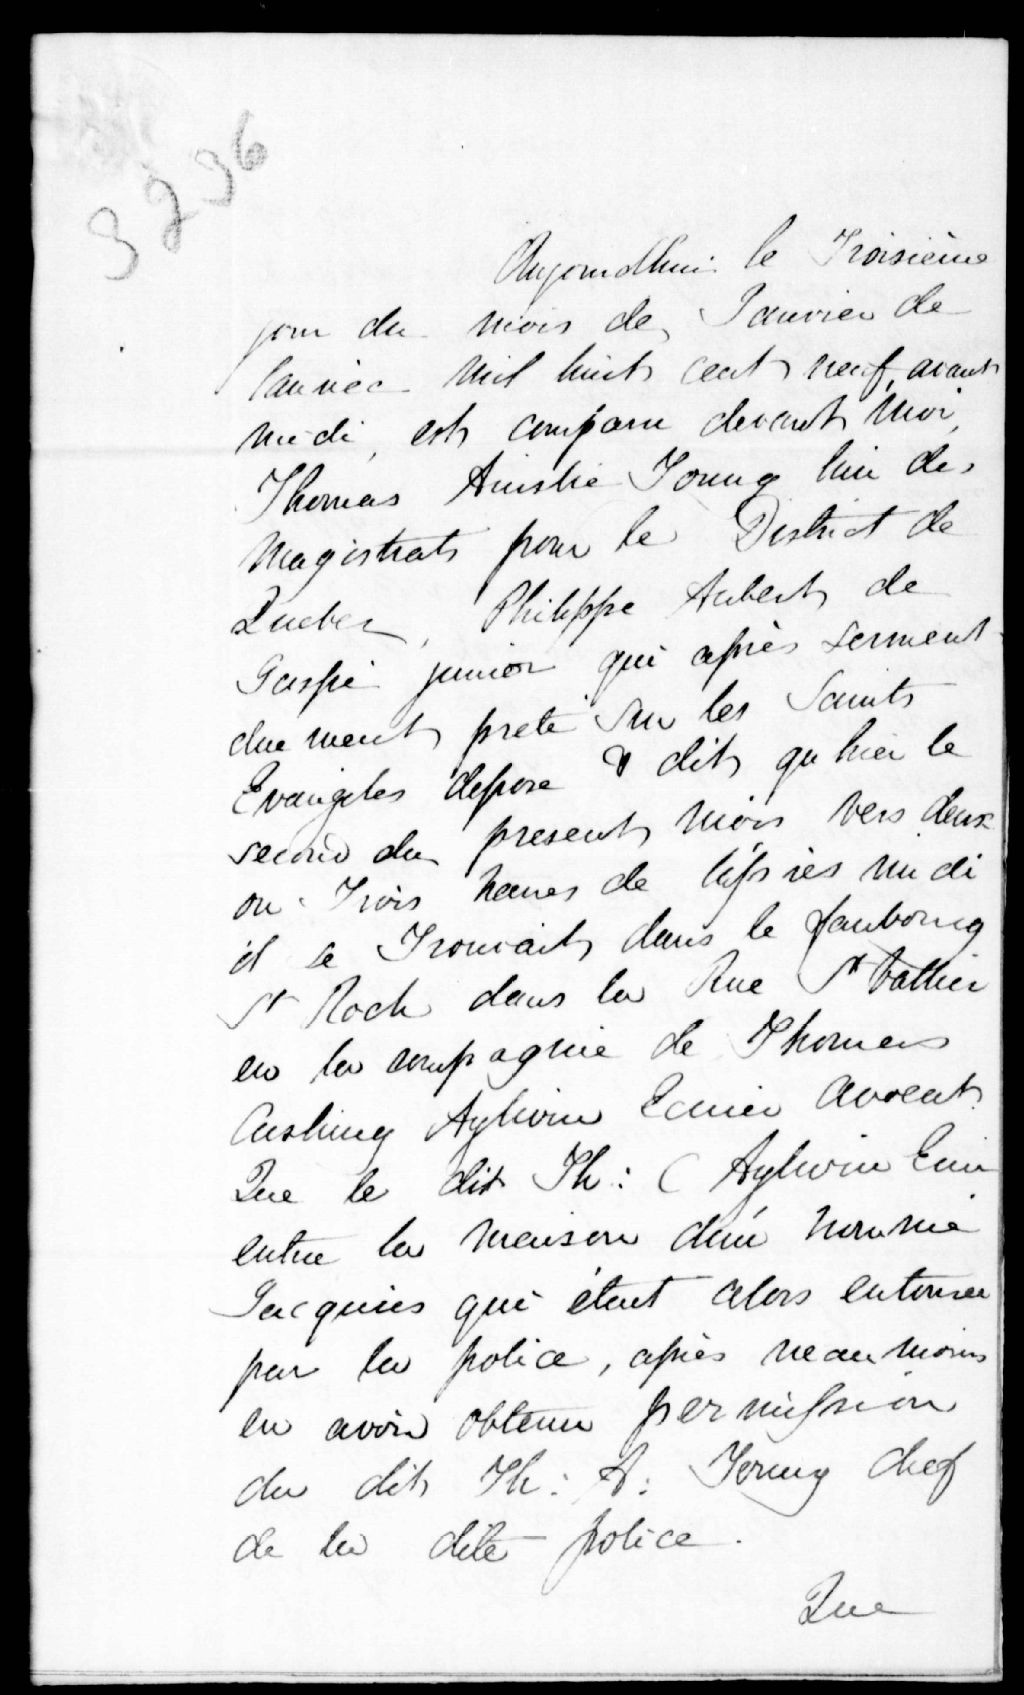 3236
Aujourdhui le Troisième
jour du mois de Janvier de
lannée mil huit cent neuf, avant
midi, est comparu devant moi,
Thomas Ainslie Young lun des
Magistrats pour le District de
Quebec, Philippe Aubert de
Gaspé junior qui après serment
duement preté sur les Saints
Evangiles depose & dit qu hier le
second du present mois vers deux
ou Trois heures de l'après midi
il se Trouvait dans le faubourg
St Roch dans la Rue St Vallier
en la compagnie de Thomas
Cushing Aylwin Ecuier avocat.
Que le dit Th: C Aylwin Ecuier
entra la maison d'un nommé
Jacquies qui étant alors entourée
par la police, après neanmoins
en avoir obtenu permission
du dit Th: A: Young chef
de la dite police.
Que